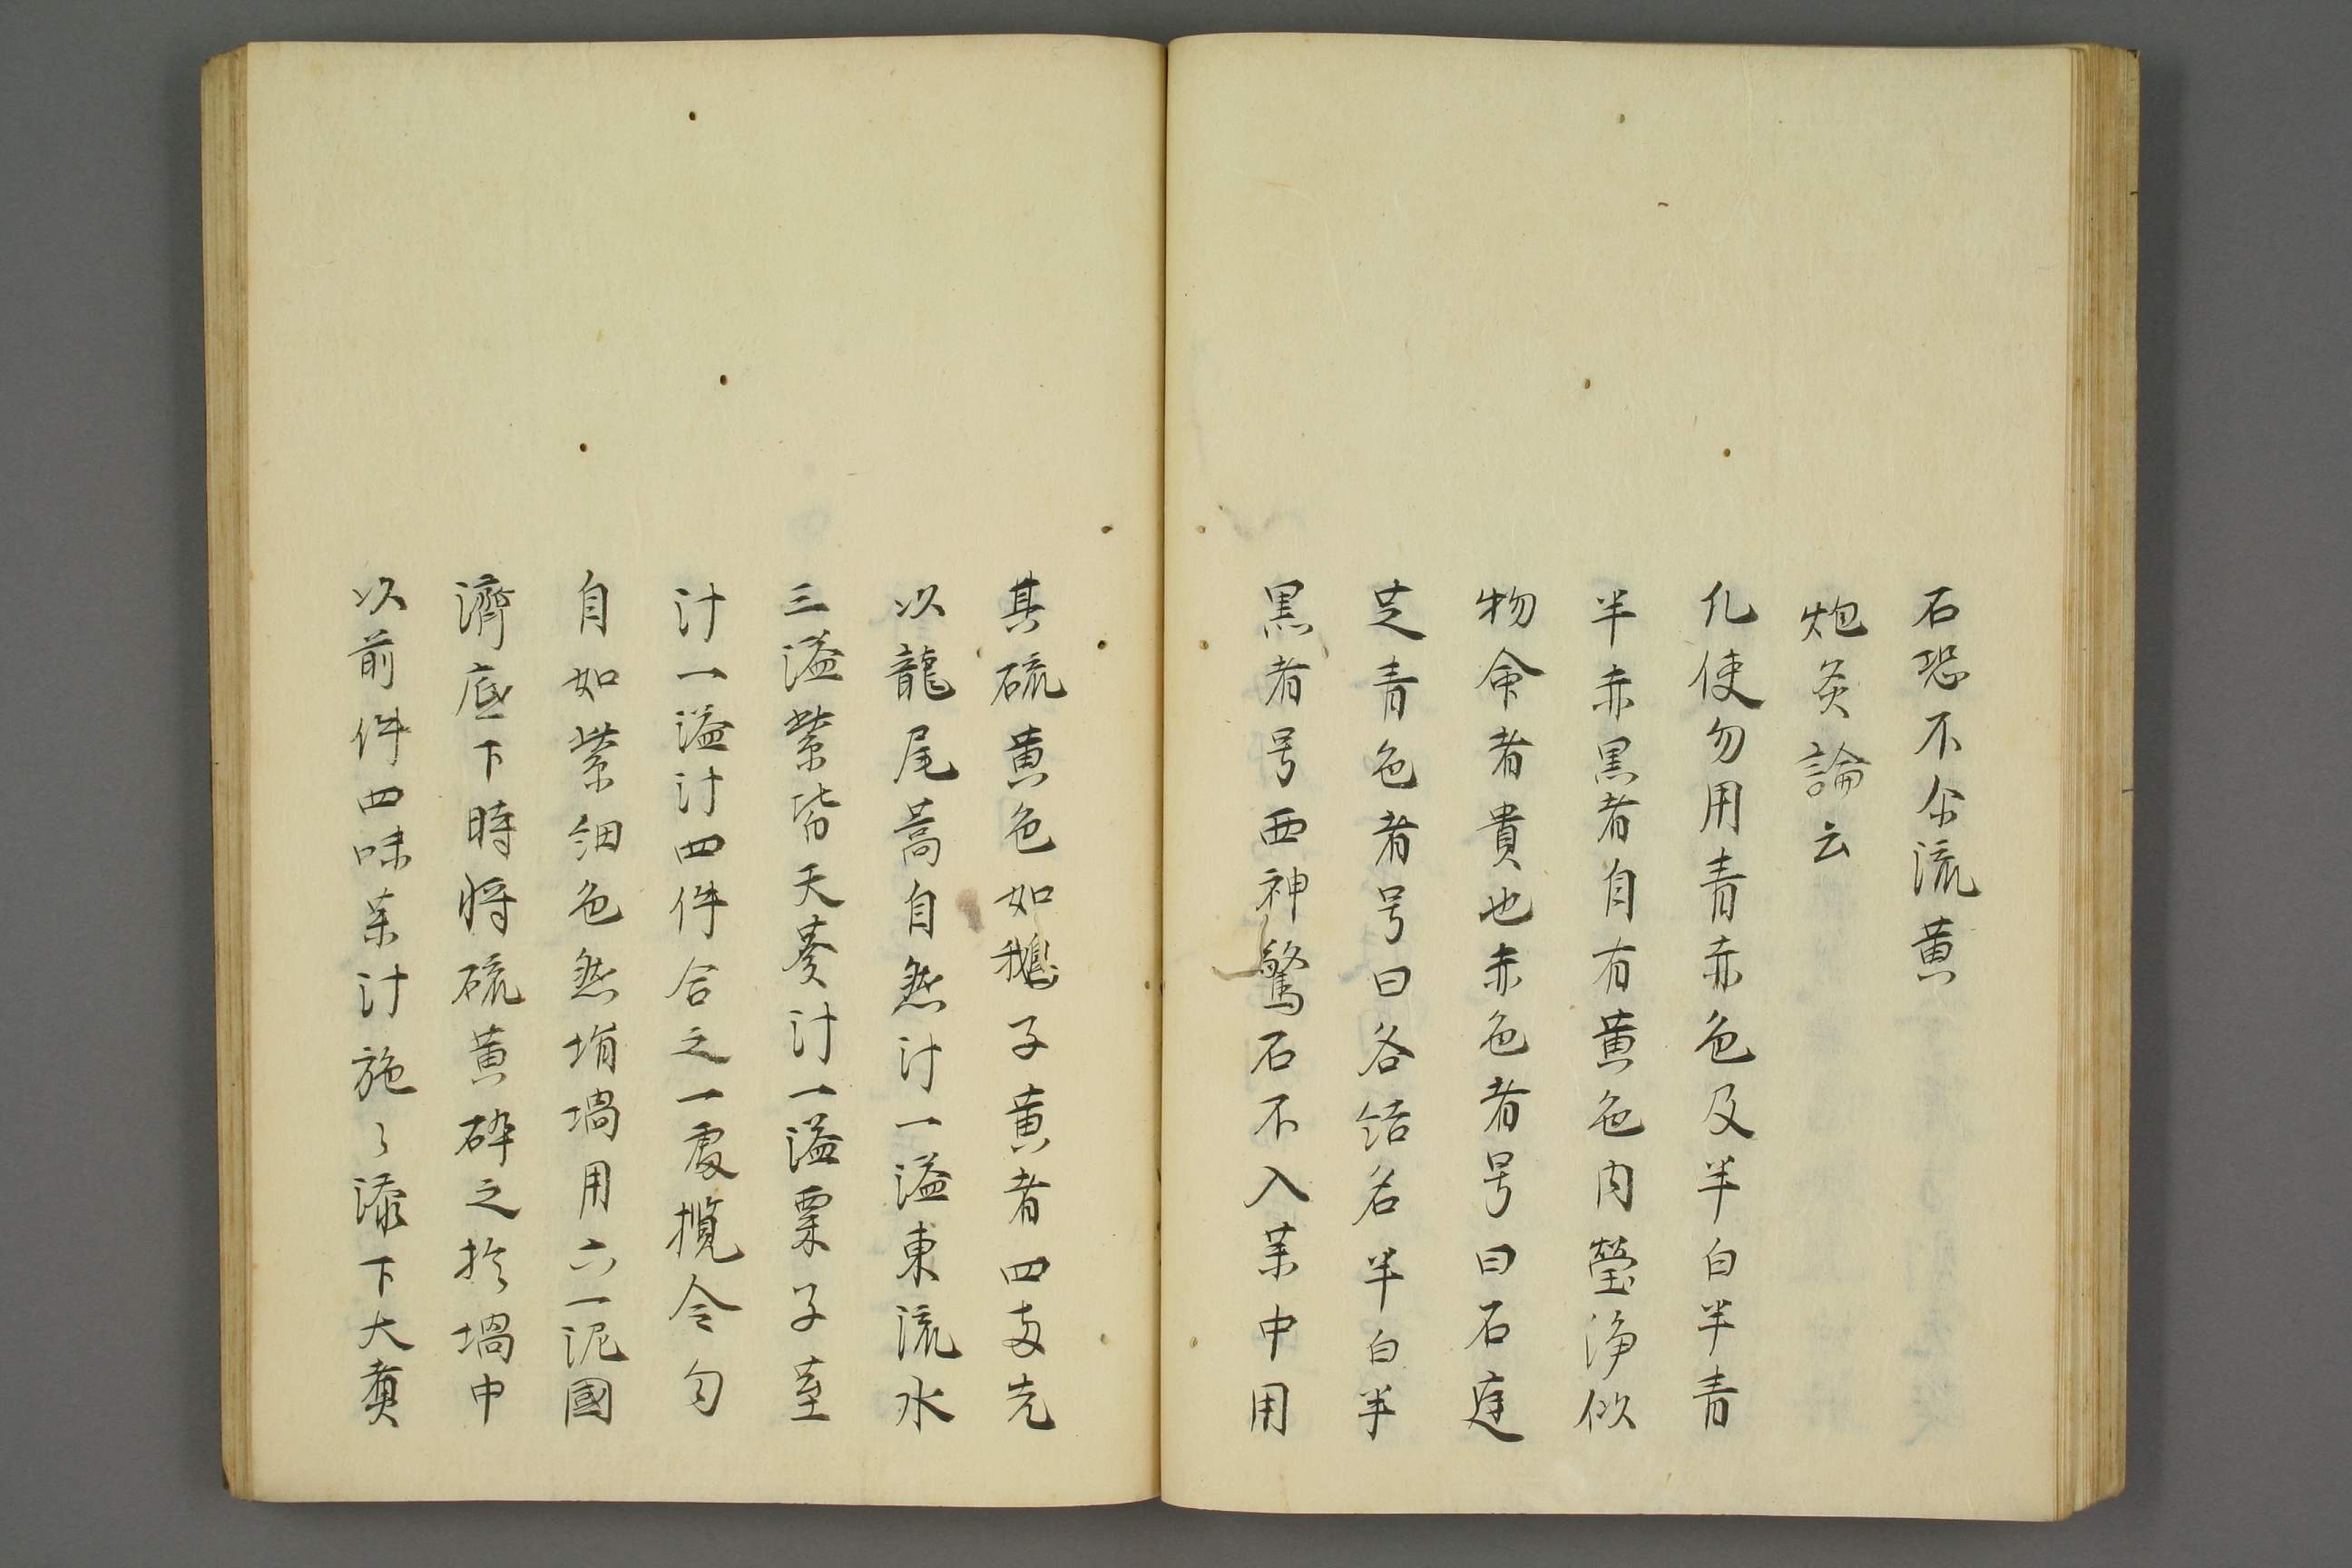 石恐不尒流黄
炮炙論云
凢使勿用青赤色及半白半青
半赤黒者自有黄色内瑩浄似
物命者貴也赤色者号曰石庭
芝青色者号曰各結名半白半
黒者号西神驚石不入茱中用
其硫黄色如鵝子黄者四支先
以龍尾蒿自然汁一溢東流水
三溢紫背天葵汁一溢粟子莖
汁一溢汁四件合之一處攬令匀
自如紫細色然埚堝用六一泥國
濟底下時将硫黄砕之扵堝中
以前件四味茱汁施〻添下大賁